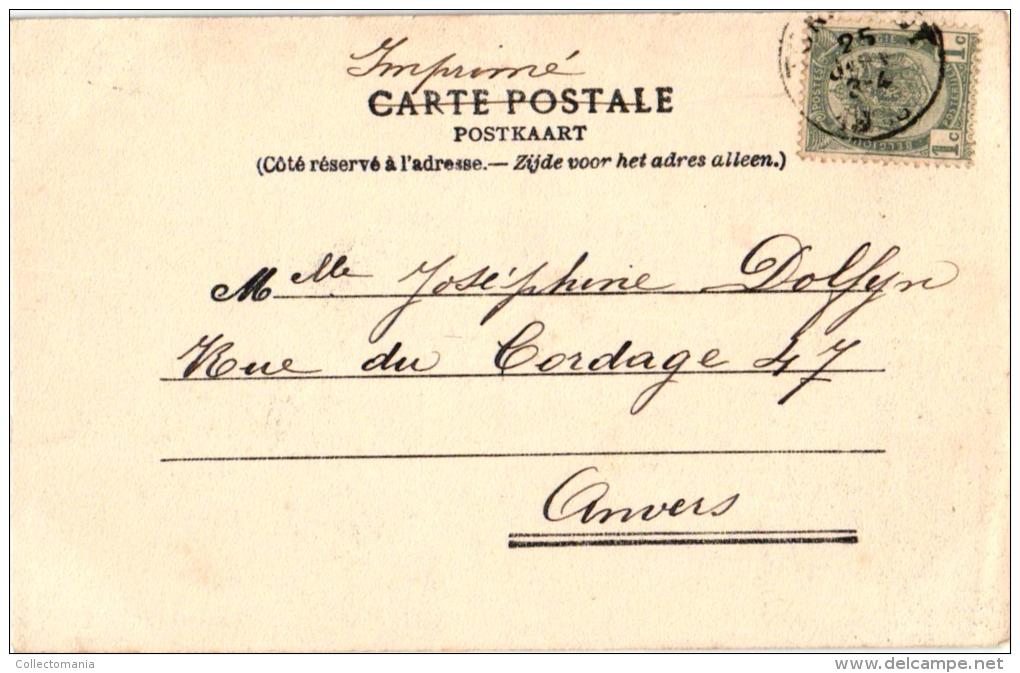 Imprimé
CARTE POSTALE
POSTKAART
(Côté réservé à l'adresse.— Zijde voor het adres alleen.)
POSTES
BELGIQUE
1c
1c
25
3-4
Mlle Joséphine Dolfyn
Rue du Cordage 47
Anvers
Collectomania
http://www.delcampe.net